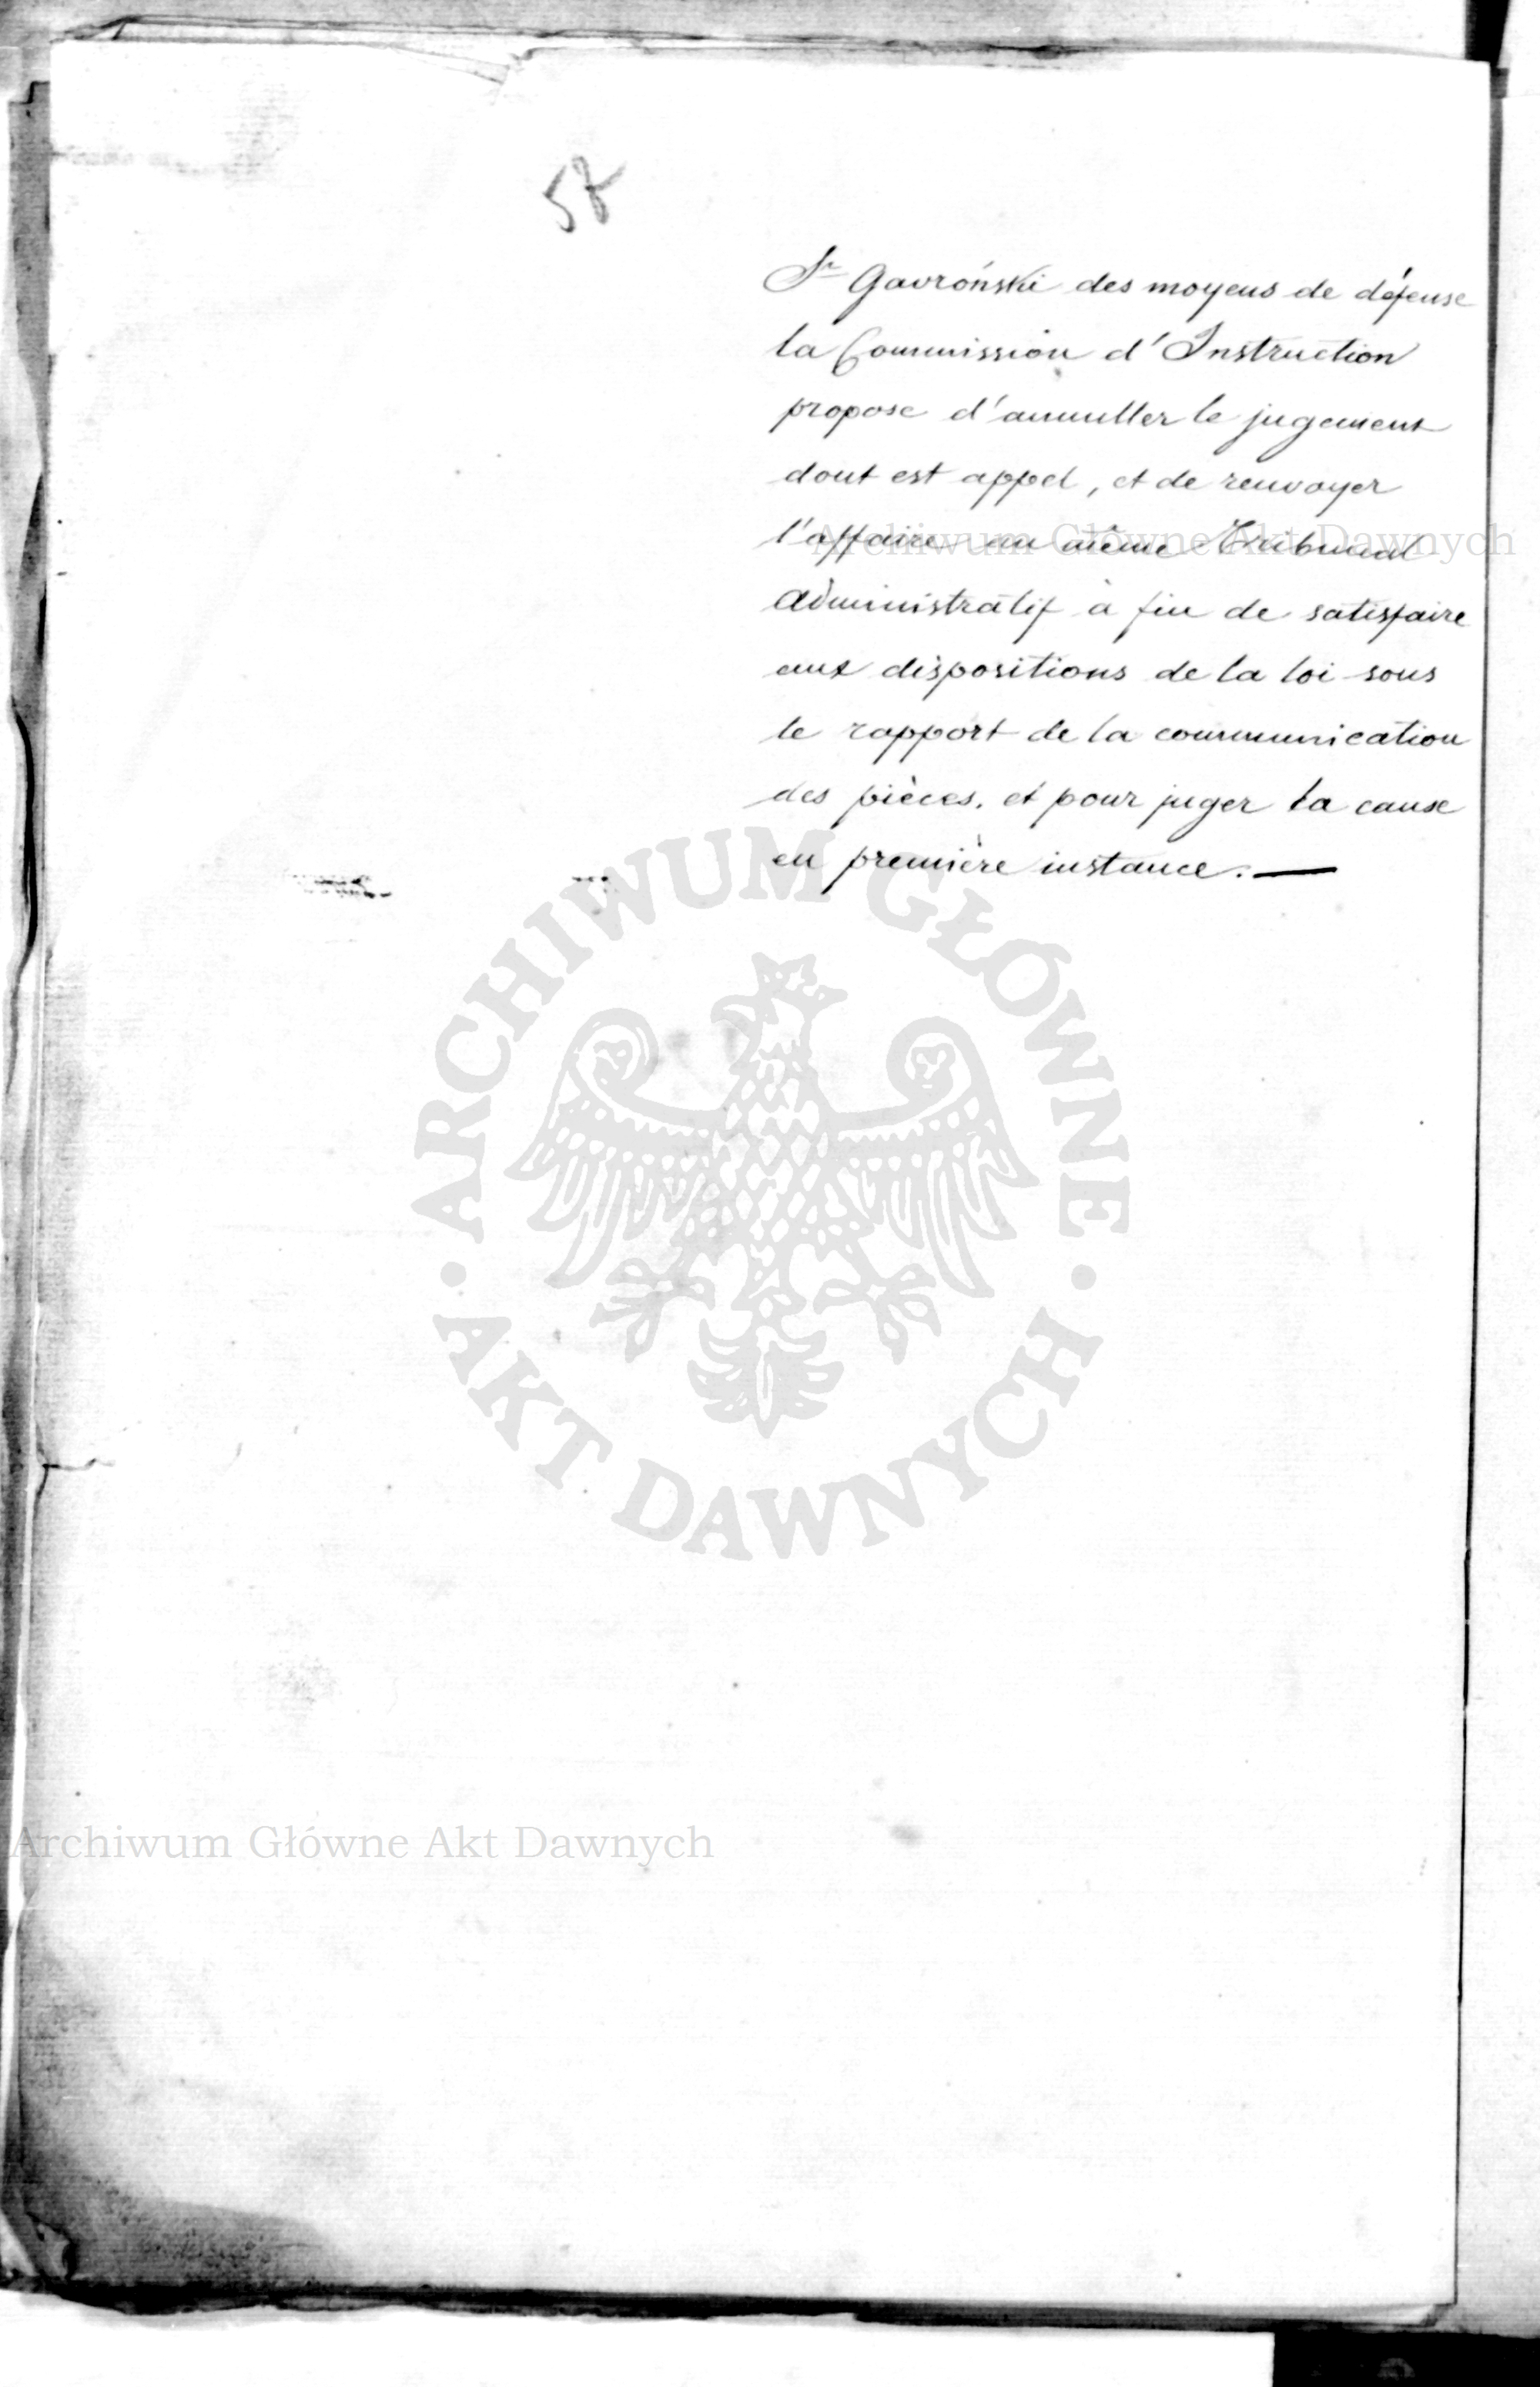 57
Sr Gavroński des moyens de défense
la Commission d'Instruction
propose d'annuller le jugement
dont est appel, et de renvoyer
l'affaire au même Tribunal
Administratif à fin de satisfaire
aux dispositions de la loi sous
le rapport de la communication
des pièces, et pour juger la cause
en première instance. —
Archiwum Główne Akt Dawnych
ARCHIWUM GŁÓWNE
AKT DAWNYCH
Archiwum Główne Akt Dawnych